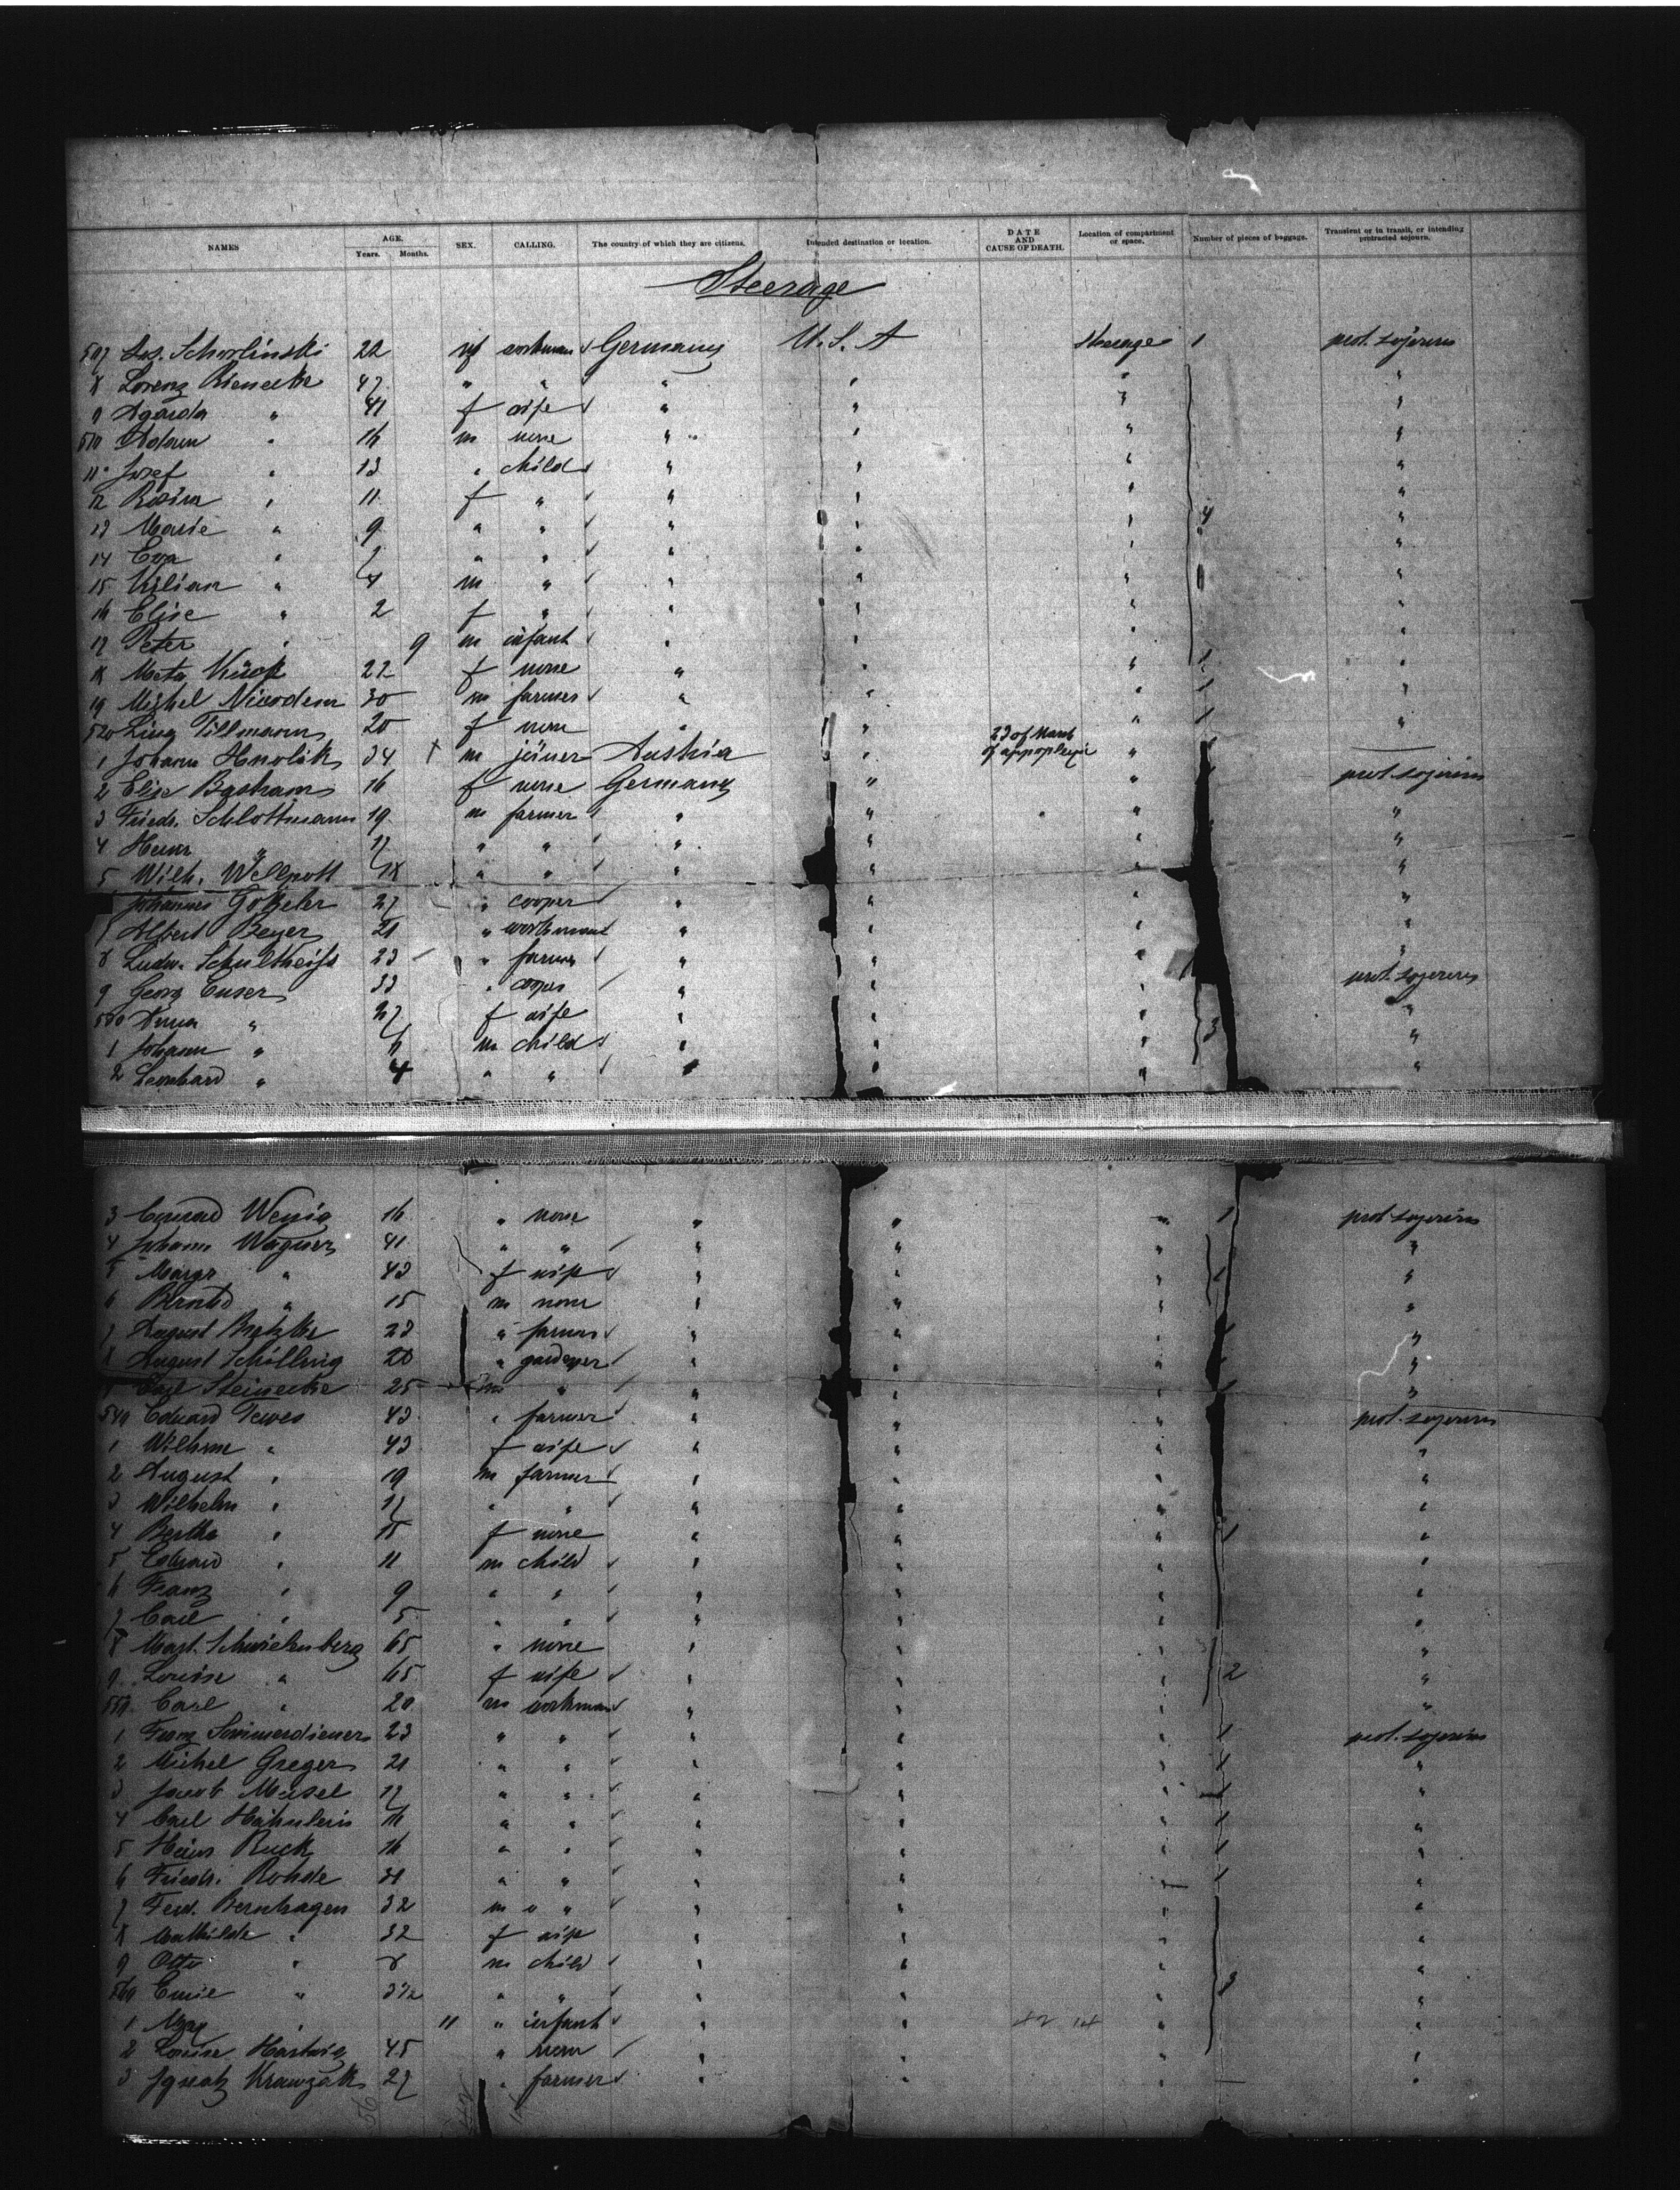 NAMES AGE. Years. Months. SEX. CALLING. The country of which they are citizens. Intended destination or location. DATE AND CAUSE OF DEATH. Location of compartment or space. Number of pieces of baggage. Transient or in transit, or intending protracted sojourn.
Steerage
507 Jos. 22 m workman Germany U.S.A Steerage 1 prot. sojourn
8 Lorenz Rienecke 47 " " " " " "
9 Agarda " 41 f wife " " " "
510 Adam " 16 m none " " " "
11 Josef " 13 " child " " " "
12 Rosina " 11 f " " " " "
13 Marie " 9 " " " " " 4 "
14 Eva " 7 " " " " " "
15 Kilian " 4 m " " " " "
16 Elise " 2 f " " " " "
17 Peter " 9 m infant " " " "
18 Meta Kück 22 f none " " " 1 "
19 Michel Nicodem 30 m farmer " " " 1 "
520 Lina Tillmann 20 f none " " " 1 "
1 Johann 34 + m joiner Austria " 23 of March of appoplexie "
2 Elise 16 f none Germany " " prot. sojourn
3 Friedr. Schlottmann 19 m farmer " " " "
4 Heinr " 17 " " " " " "
5 Wilh. Wellpott 18 " " " " " "
Johannes 27 " cooper " " " "
7 Albert Beyer 21 " workman " " " "
8 Ludw. Schultheiss 23 " farmer " " " "
9 Georg Enser 33 " cooper " " " prot. sojourn
530 Anna " 27 f wife " " " 3 "
1 Johann " 6 m child " " " "
2 Leonhard " 4 " " " " " "
3 Conrad Wenig 16 " none " " " 1 prot. sojourn
4 Johann Wagner 41 " " " " " "
5 Margr " 43 f wife " " " 1 "
6 " 15 m none " " " "
7 August Bratzke 23 " farmer " " " 1 "
8 August Schilling 20 " gardener " " " "
9 Carl Steinecke 25 m " " " " 1 "
540 Eduard Tewes 43 " farmer " " " prot. sojourn
1 Wilhme " 43 f wife " " " "
2 August " 19 m farmer " " " "
3 Wilhelm " 17 " " " " " "
4 Bertha " 15 f none " " " 1 "
5 Eduard " 11 m child " " " "
6 Franz " 9 " " " " " "
7 Carl " 5 " " " " " "
8 65 " none " " " "
9 Louise " 65 f wife " " " 2 "
550 Carl " 20 m workman " " " "
1 Franz Sommerdiener 23 " " " " " 1 prot. sojourn
2 Michel Greger 21 " " " " " 1 "
3 Jacob Meisel 17 " " " " " 1 "
4 Carl Hähnlein 16 " " " " " 1 "
5 Heinr Buck 16 " " " " " 1 "
6 Friedr. Rohde 31 " " " " " 1 "
7 Ferd. Bernhagen 32 m " " " " "
8 Mathilde " 32 f wife " " " "
9 Otto " 8 m child " " " "
560 Emil " 3½ " " " " " 3 "
1 Max " 11 " infant " " " "
2 Louise Hartwig 45 " none " " " "
3 Ignatz Krawzak 27 " farmer " " " "